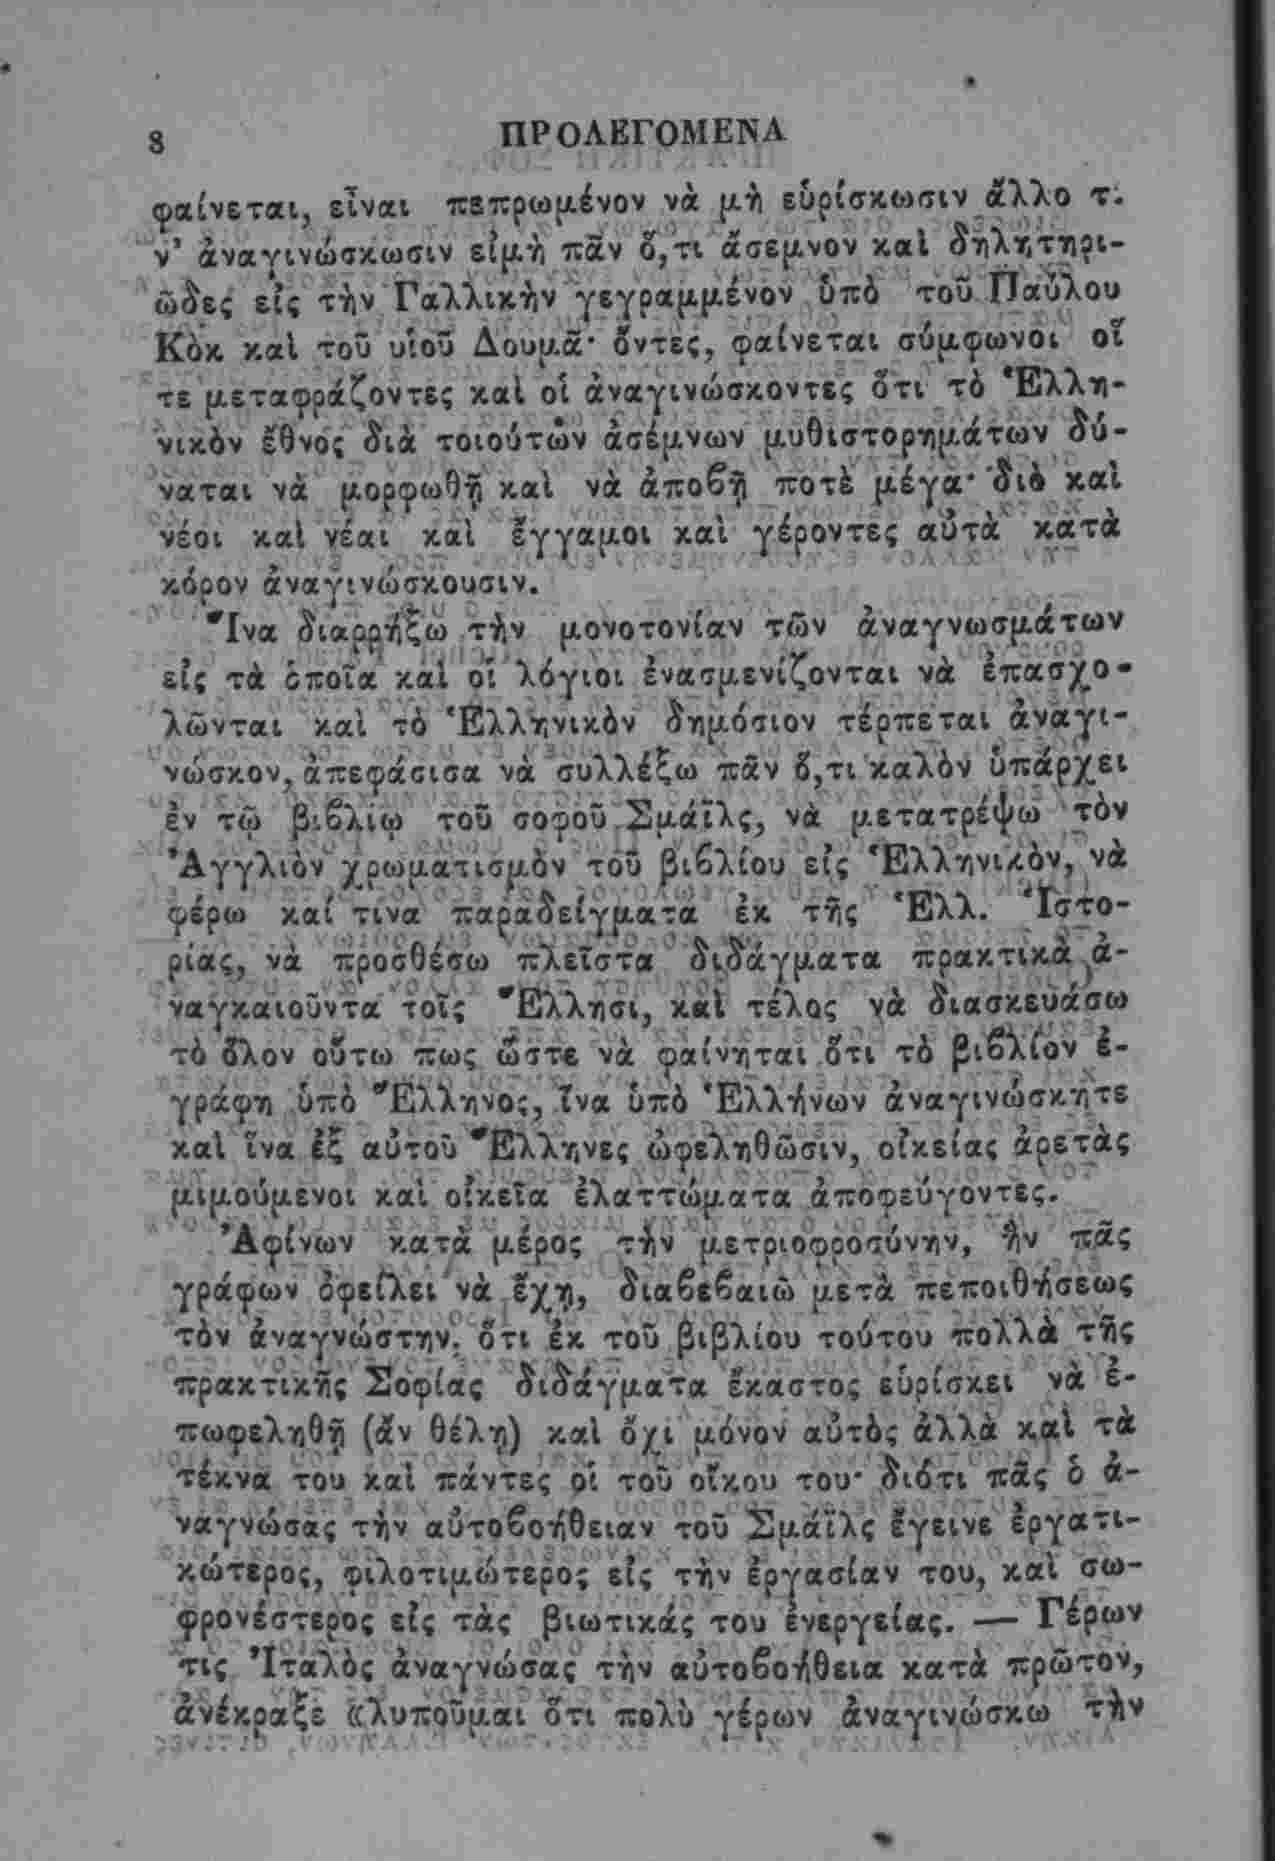 8 ΠΡΟΛΕΓΟΜΕΝΑ
φαίνεται, εἶναι πεπρωμένον νὰ μὴ εὑρίσκωσιν ἄλλο τι
ν’ ἀναγινώσκωσιν εἰμὴ πᾶν ὅ,τι ἄσεμνον καὶ δηλητηρι-
ῶδες εἰς τὴν Γαλλικὴν γεγραμμένον ὑπὸ τοῦ Παύλου
Κὸκ καὶ τοῦ υἱοῦ Δουμᾶ· ὄντες, φαίνεται σύμφωνοι οἵ
τε μεταφράζοντες καὶ οἱ ἀναγινώσκοντες ὅτι τὸ Ἑλλη-
νικὸν ἔθνος διὰ τοιούτων ἀσέμνων μυθιστορημάτων δύ-
ναται νὰ μορφωθῇ καὶ νὰ ἀποϐῇ ποτὲ μέγα· διὸ καὶ
νέοι καὶ νέαι καὶ ἔγγαμοι καὶ γέροντες αὐτὰ κατὰ
κόρον ἀναγινώσκουσιν.
Ἵνα διαρρήξω τὴν μονοτονίαν τῶν ἀναγνωσμάτων
εἰς τὰ ὁποῖα καὶ οἱ λόγιοι ἐνασμενίζονται νὰ ἐπασχο-
λῶνται καὶ τὸ Ἑλληνικὸν δημόσιον τέρπεται ἀναγι-
νώσκον, ἀπεφάσισα νὰ συλλέξω πᾶν ὅ,τι καλὸν ὑπάρχει
ἐν τῷ βιϐλίῳ τοῦ σοφοῦ Σμάϊλς, νὰ μετατρέψω τὸν
Ἀγγλιὸν χρωματισμὸν τοῦ βιϐλίου εἰς Ἑλληνικὸν, νὰ
φέρω καί τινα παραδείγματα ἐκ τῆς Ἑλλ. Ἱστο-
ρίας, νὰ προσθέσω πλεῖστα διδάγματα πρακτικὰ ἀ-
ναγκαιοῦντα τοῖς Ἕλλησι, καὶ τέλος νὰ διασκευάσω
τὸ ὅλον οὕτω πως ὥστε νὰ φαίνηται ὅτι τὸ βιϐλίον ἐ-
γράφη ὑπὸ Ἕλληνος, ἵνα ὑπὸ Ἑλλήνων ἀναγινώσκητε
καὶ ἵνα ἐξ αὐτοῦ Ἕλληνες ὠφεληθῶσιν, οἰκείας ἀρετὰς
μιμούμενοι καὶ οἰκεῖα ἐλαττώματα ἀποφεύγοντες.
Ἀφίνων κατὰ μέρος τὴν μετριοφροσύνην, ἣν πᾶς
γράφων ὀφείλει νὰ ἔχῃ, διαϐεϐαιῶ μετὰ πεποιθήσεως
τὸν ἀναγνώστην, ὅτι ἐκ τοῦ βιβλίου τούτου πολλὰ τῆς
πρακτικῆς Σοφίας διδάγματα ἕκαστος εὑρίσκει νὰ ἐ-
πωφεληθῇ (ἂν θέλῃ) καὶ ὄχι μόνον αὐτὸς ἀλλὰ καὶ τὰ
τέκνα του καὶ πάντες οἱ τοῦ οἴκου του· διότι πᾶς ὁ ἀ-
ναγνώσας τὴν αὐτοϐοήθειαν τοῦ Σμάϊλς ἔγεινε ἐργατι-
κώτερος, φιλοτιμώτερος εἰς τὴν ἐργασίαν του, καὶ σω-
φρονέστερος εἰς τὰς βιωτικάς του ἐνεργείας. — Γέρων
τις Ἰταλὸς ἀναγνώσας τὴν αὐτοϐοήθεια κατὰ πρῶτον,
ἀνέκραξε «λυποῦμαι ὅτι πολὺ γέρων ἀναγινώσκω τὴν